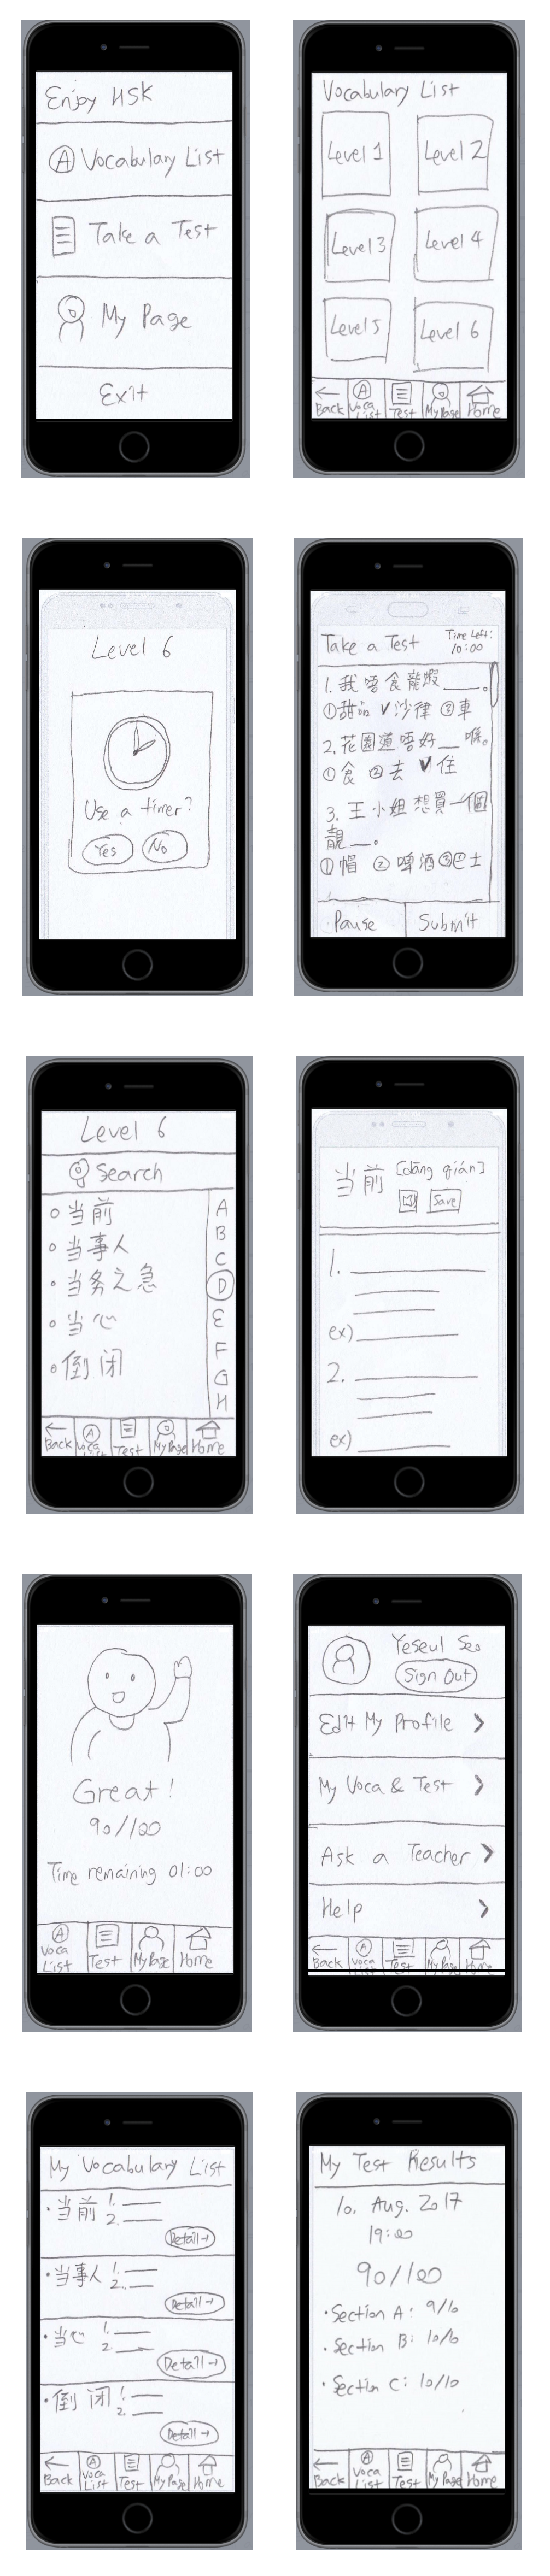 Enjoy HSK
A Vocabulary List
Take a Test
My Page
Exit
Vocabulary List
Level 1
Level 2
Level 3
Level 4
Level 5
Level 6
Back
A Voca List
Test
My Page
Home
Level 6
Use a timer?
Yes
No
Take a Test
Time Left:
10:00
1. 我唔食龍蝦___。
①甜品 ✓沙律 ③車
2. 花園道唔好__喺。
①食 ②去 ✓住
3. 王小姐想買一個
靚__。
①帽 ②啤酒 ③巴士
Pause
Submit
Level 6
Search
当前
当事人
当务之急
当心
倒闭
A
B
C
D
E
F
G
H
Back
A Voca List
Test
My Page
Home
当前 [dāng qián]
Save
1.
ex)
2.
ex)
Great!
90/100
Time remaining 01:00
A
Voca List
Test
My Page
Home
Yeseul Seo
Sign Out
Edit My Profile >
My Voca & Test >
Ask a Teacher >
Help >
Back
A Voca List
Test
My Page
Home
My Vocabulary List
・当前 1.
2.
Detail →
・当事人 1.
2.
Detail →
・当心 1.
2.
Detail →
・倒闭 1.
2.
Detail →
Back
A Voca List
Test
My Page
Home
My Test Results
10. Aug. 2017
19:00
90/100
・Section A: 9/10
・Section B: 10/10
・Section C: 10/10
Back
A Voca List
Test
My Page
Home